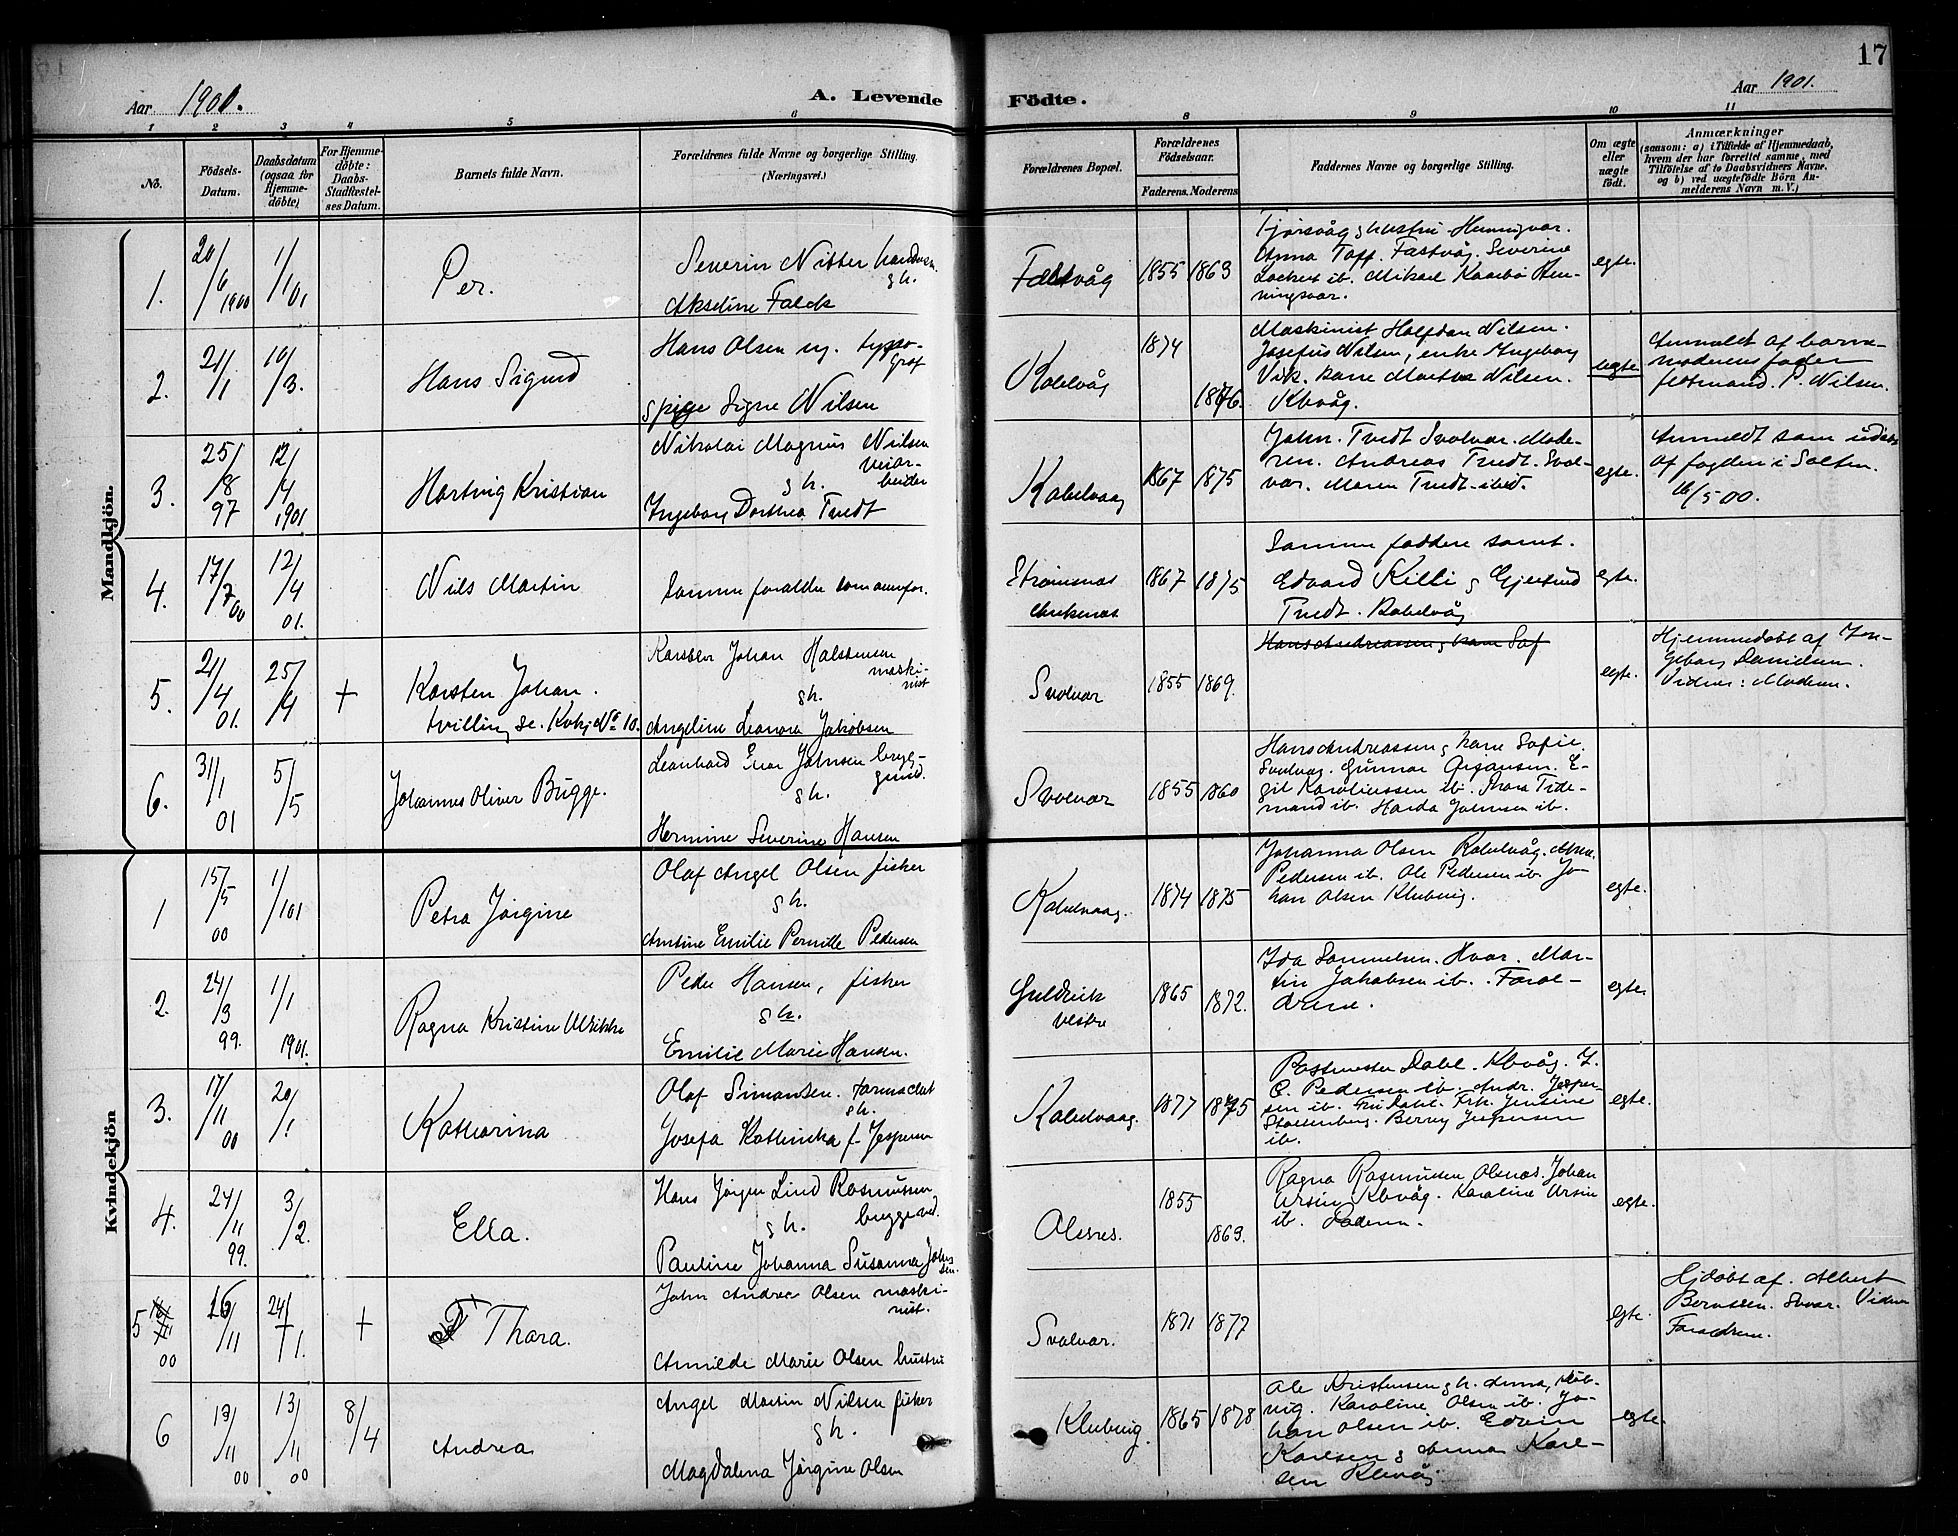 17
Aar 1901.
A. Levende
Födte.
Aar 1901.
1 2 3 4 5 6 8 9 10 11
No.
Födsels-
Datum.
Daabsdatum
(ogsaa for
Hjemme-
döbte)
For Hjemme-
döbte:
Daabs-
Stadfæstel-
ses Datum.
Barnets fulde Navn.
Forældrenes fulde Navne og borgerlige Stilling.
(Næringsvei.)
Forældrenes Bopæl.
Forældrenes
Födselsaar.
Faderens. Moderens.
Faddernes Navne og borgerlige Stilling.
Om ægte
eller
uægte
födt.
Anmærkninger
(saasom: a) i Tilfælde af Hjemmedaab,
hvem der har forrettet samme, med
Tilföielse af to Daabsvidners Navne,
og b) ved uægtefödte Börn An-
melderens Navn m. V.)
Mandkjön.
1.
20/6 1900
1/1 01
Per.
Severin Nitter
g h.
Akseline Falck
Fæstvåg
1855 1863
hustru Henningsvær.
Anna Fæstvåg. Severine
Lockert ib. Mikael Kaarbø Hen-
ningsvær.
egte.
2.
21/1
10/3.
Hans Sigurd
Hans Olsen typo-
graf
pige Signe Nilsen
Kabelvåg
1874
1876.
Maskinist Halfdan Nilsen.
Josefus Nilsen, enke Ingeborg
Vik. kone Nilsen.
Kbvåg.
uegte.
Anmeldt af barne-
moderens fader
P. Nilsen.
3.
25/8 97
12/4 1901
Hartvig Kristian
Nikolai Magnus Nilsen
veiar-
beider
g h.
Ingeborg Dorthea Tvedt
Kabelvaag
1867 1875
Johan. Tvedt Svolvær. Mode-
ren. Andreas Tvedt. Svol-
vær. Maren Tvedt ibid.
egte.
Anmeldt som
af fogden i Salten.
16/5 00.
4.
17/7 00
12/4 01.
Nils Martin
Samme forældre som ovenfor.
Strømsnæs
1867 1875
Samme faddere samt.
Edvard Killi g Gjertrud
Tvedt. Kabelvåg
egte.
5.
21/4 01.
25/4
+
Karsten Johan.
tvilling se. Kvkj No 10.
Karsten Johan Halstensen
maski-
nist
g h.
Angeline Leonora Jakobsen
Svolvær
1855 1869.
Hans Andreassen g kone Sof
egte.
Hjemmedøbt af In-
geborg Danielsen.
Vidner: Moderen.
6.
31/1 01
5/5
Johannes Oliver Bugge.
Leonhard Johnsen
g h.
Hermine Severine Hansen
Svolvær
1855 1860
Hans Andreassen g kone Sofie
Svolvær. Gunnar Ørjansen. E-
gil Karolinssen ib. Thora Tide-
mand ib. Johnsen ib.
Kvindekjön
1
15/5 00
1/1 01
Petra Jørgine
Olaf Angel Olsen fisker
g h.
Antine Emilie Pernille Pedersen
Kabelvaag.
1874 1875
Johanna Olsen Kabelvåg.
Pedersen ib. Ole Pedersen ib. Jo-
han Olsen
egte.
2.
24/3 99.
1/1 1901.
Ragna Kristine Ulrikke
Peder Hansen, fisker
g h.
Emilie Marie Hansen.
Guldvik
vestre
1865 1872.
Ida Samuelsen. Hvær. Mar-
tin Jakobsen ib. Foræl-
drene.
egte.
3.
17/11 00
20/1
Katharina
Olaf Simonsen. farmaceut
g h.
Josefa Kathinka f. Jespersen
Kabelvaag.
1877 1875
Postmester Dahl. Kbvåg. J.
C. Pedersen ib. Andr. Jesper-
sen ib. Fru Dahl. Frk. Jensine
Stoltenberg. Jespersen
ib.
egte.
4.
24/11 99.
3/2.
Ella.
Hans Jørgen Lind Rasmussen
g h.
Pauline Johanna Susanna Johns
sen.
Olsnes.
1855
1863.
Ragna Rasmussen Olsnæs. Johan
Ursin Kbvåg. Karoline Ursin
ib. Faderen.
egte.
5
00
16/11
24/1.
+
Thora.
John Andrea Olsen maski-
nist.
Anmilde Marie Olsen hustru
Svolvær.
1871 1877
egte.
Hjdøbt af. Albert
Berntsen. Svær. Vidner
Forældrene.
6
19/11 00
13/11 00
8/4
Andrea
Angel Martin Nilsen fisker
g h.
Magdalena Jørgine Olsen
1865 1878
Ole Kristensen g h. Anna,
Karoline Olsen ib. Jo-
han Olsen ib. Edvin
Karlsen g Anna Karl-
sen
egte.